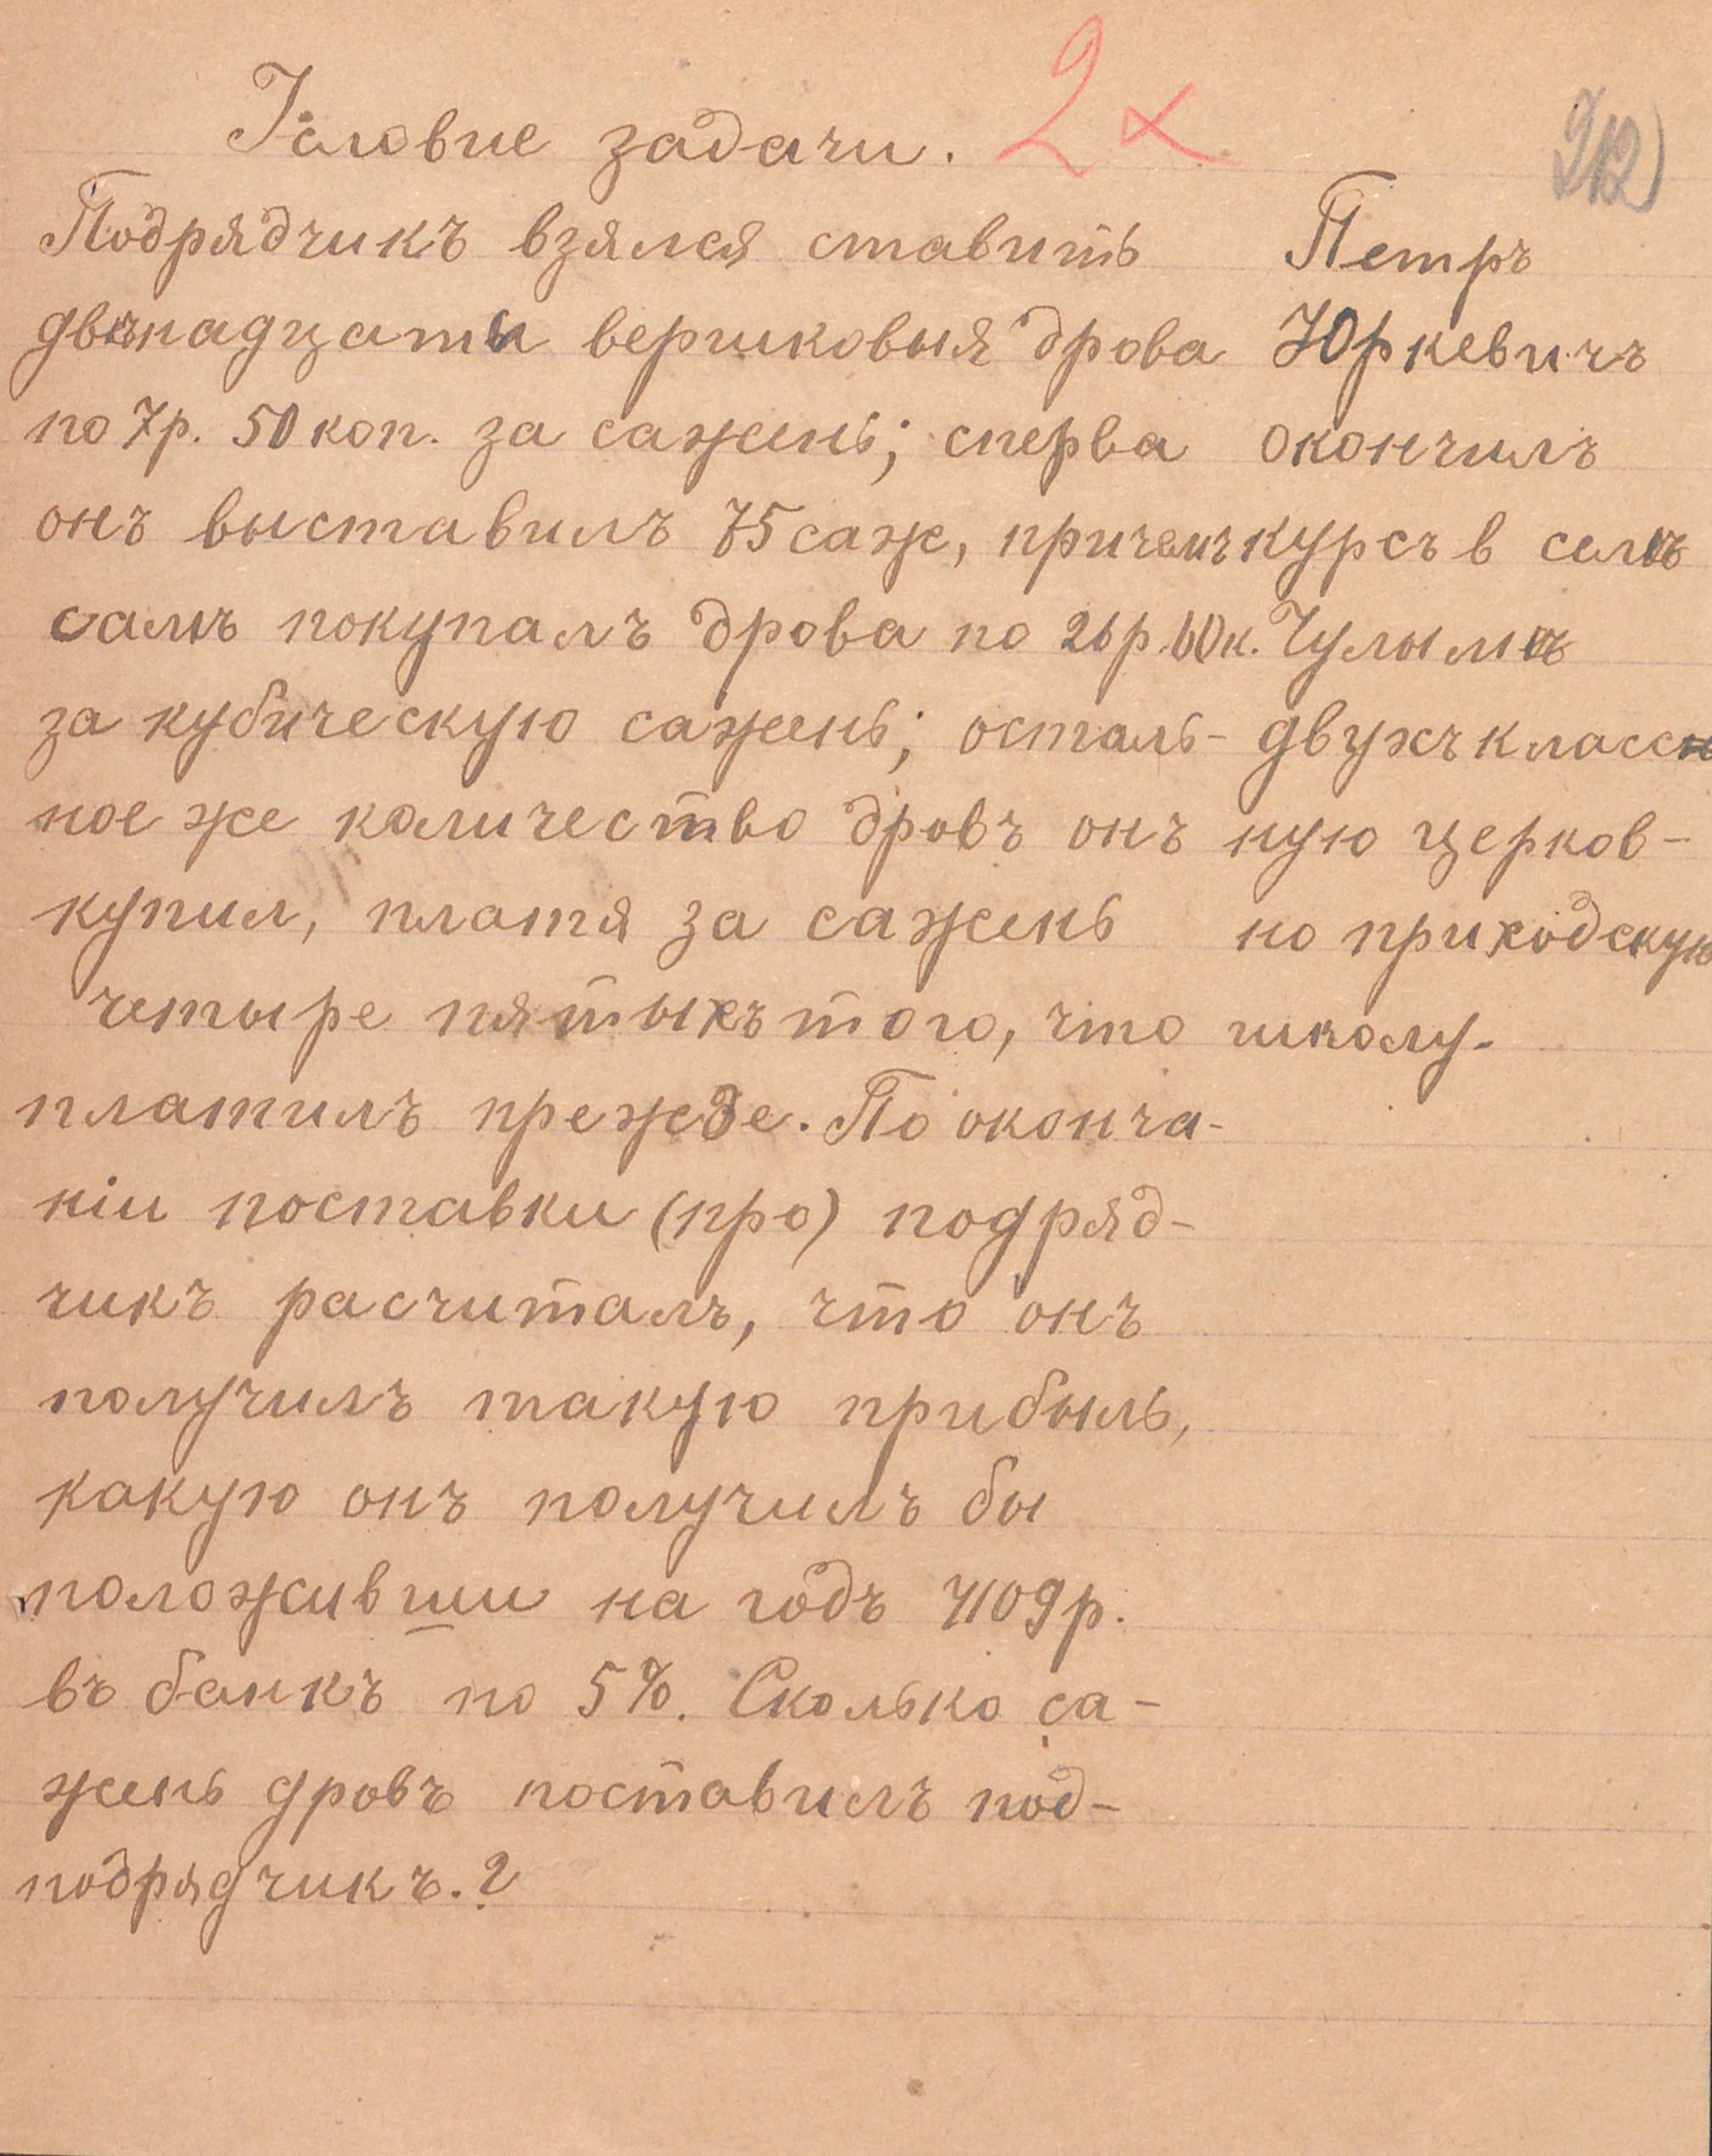 Условие задачи. 2
Подрядчикъ взялся ставить
двѣнадцати вершковыя дрова
по 7р. 50 коп. за сажень; сперва
онъ выставилъ 75 саж, причемъ
самъ покупалъ дрова по 26р. 60к.
за кубическую сажень; осталь-
ное же количество дровъ онъ
купил, платя за сажень
четыре пятыхъ того, что
платилъ прежде. По оконча-
ніи поставки (про) подряд-
чикъ расчиталъ, что онъ
получилъ такую прибыль,
какую онъ получилъ бы
положивши на годъ 4109р.
въ банкъ по 5%. Сколько са-
жень дровъ поставилъ под-
подрядчикъ.?
Петръ
Юркевичъ
окончилъ
курсъ в селѣ
Чулымѣ
двухъ классн
ную церков-
но приходскую
школу.